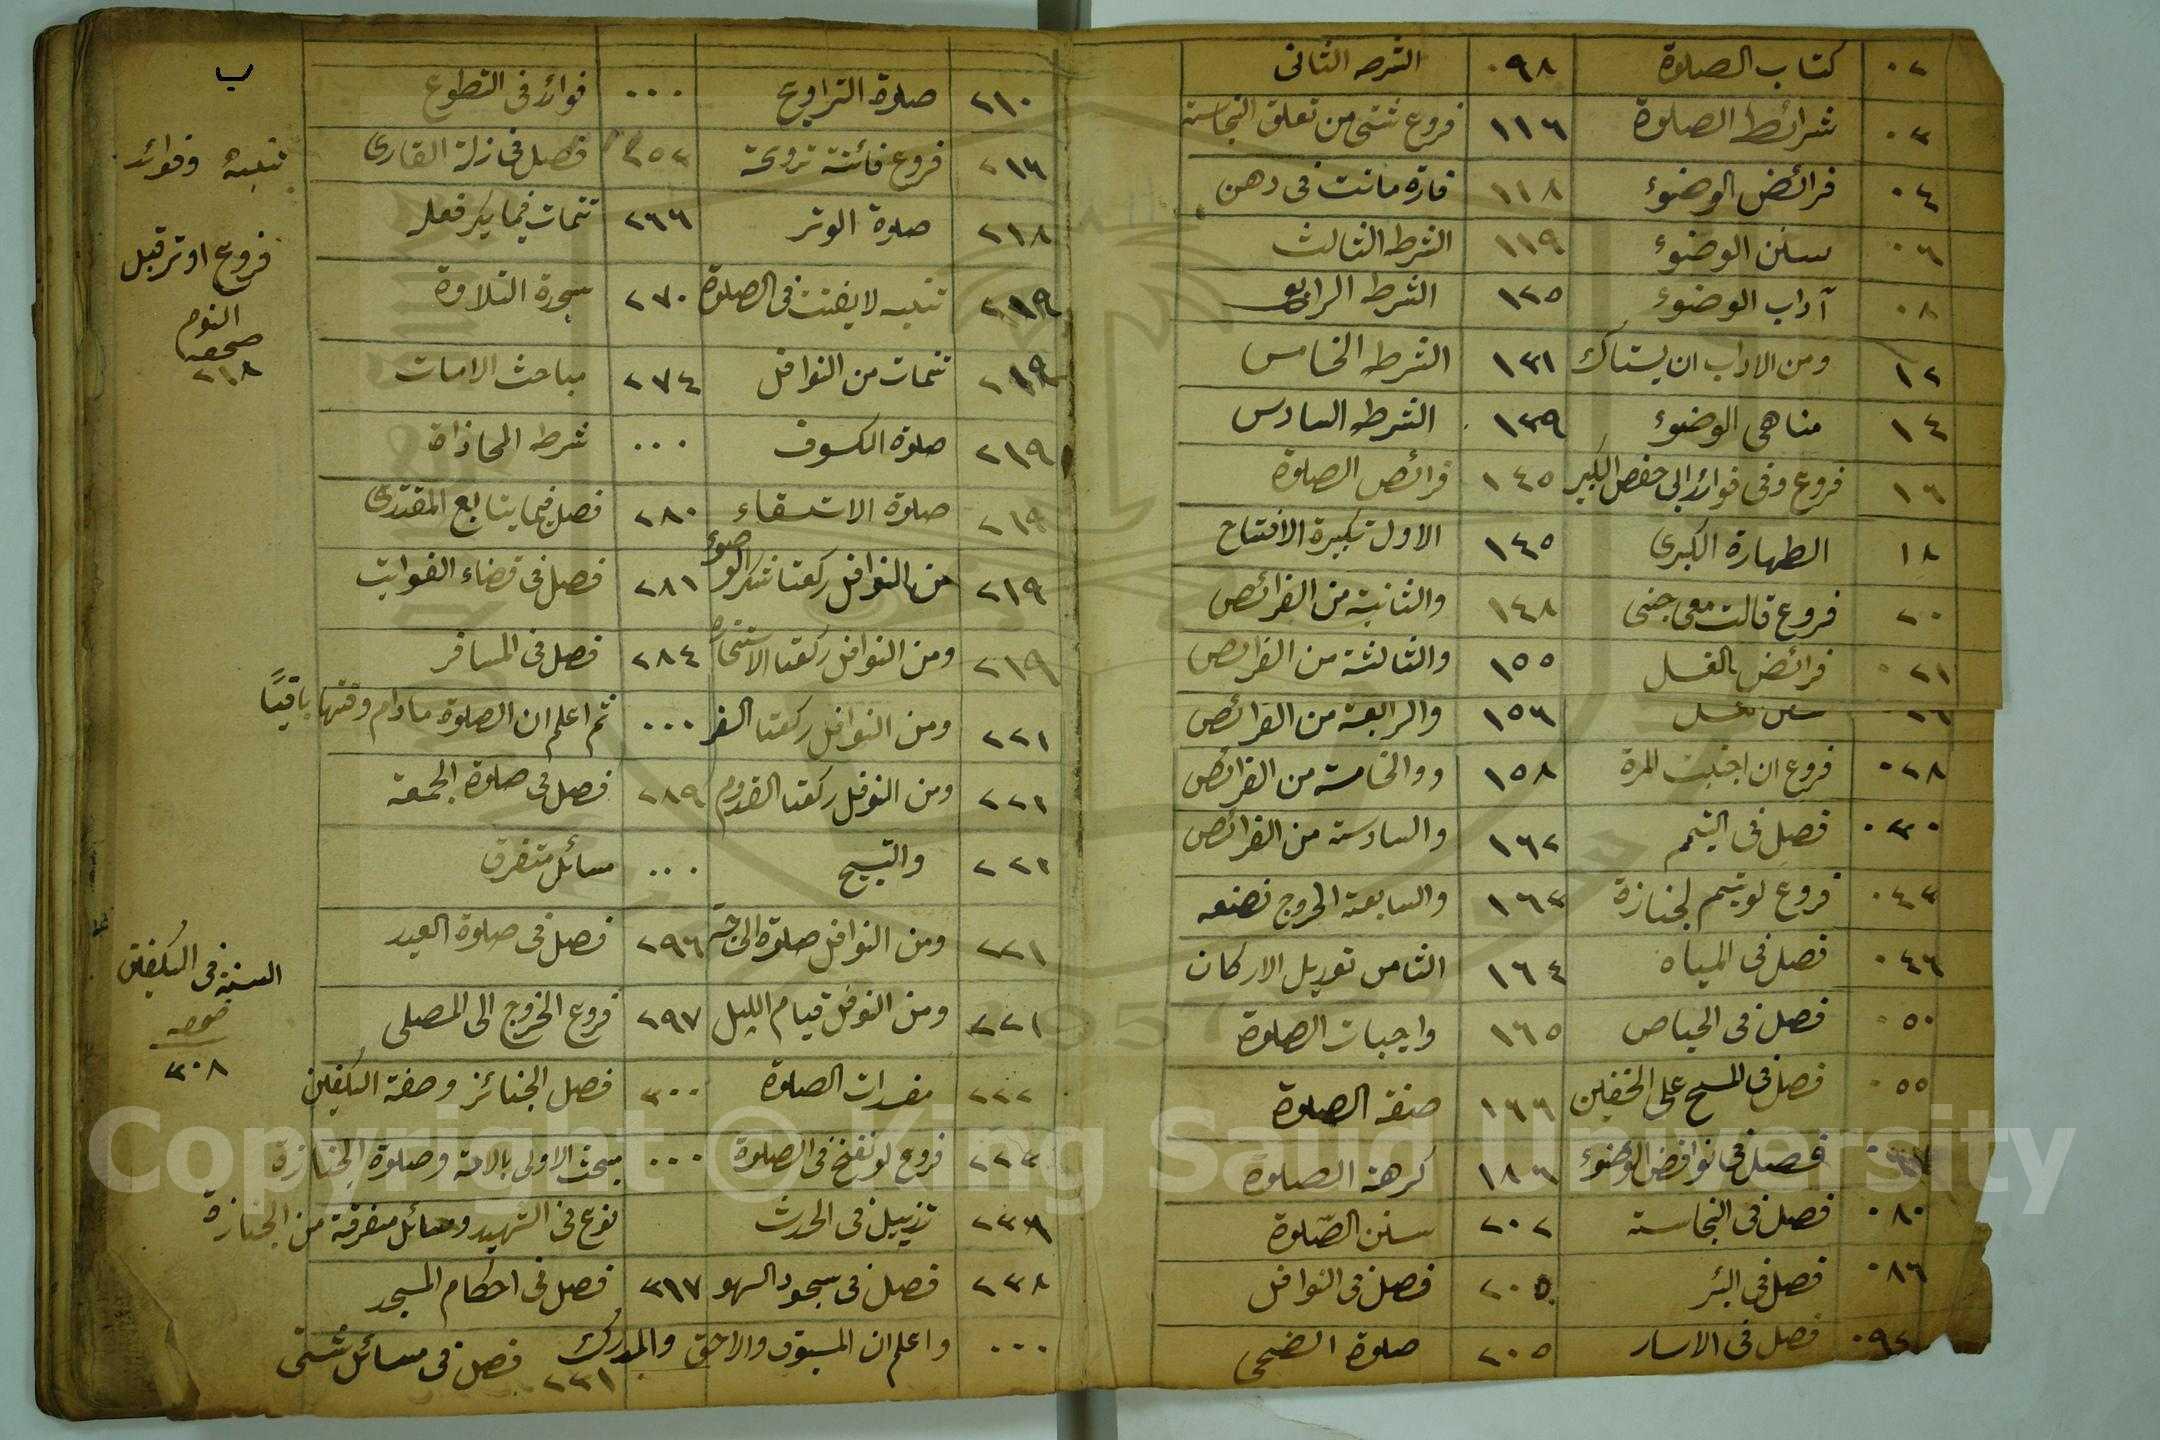 ٠٢ كتاب الصلوة ٠٩٨ الشرط الثانى
٠٣ شرائط الصلوة ١١٦ فروع شتى من تعلق النجاسة
٠٤ فرائض الوضوء ١١٨ فارة ماتت فى دهن
٠٦ سنن الوضوء ١١٩ الشرط الثالث
٠٨ آداب الوضوء ١٢٥ الشرط الرابع
١٢ ومن الاداب ان يستاك ١٣١ الشرط الخامس
١٤ مناهى الوضوء ١٣٩ الشرط السادس
١٦ فروع وفى فوائد ابى حفص الكبير ١٤٥ فرائض الصلوة
١٨ الطهارة الكبرى ١٤٥ الاول تكبيرة الافتتاح
٢٠ فروع قالت معى جنى ١٤٨ والثانية من الفرائض
٠٢١ فرائض الغسل ١٥٥ والثالثة من الفرائض
سنن غسل ١٥٦ والرابعة من الفرائض
٠٢٨ فروع ان اجنبت المرة ١٥٨ ووالخامسة من الفرائض
٠٣٠ فصل فى التيمم ١٦٢ والسادسة من الفرائض
٠٤٣ فروع لو تيمم لجنازة ١٦٣ والسابعة الخروج بصنعه
٠٤٦ فصل فى المياه ١٦٤ الثامن تعديل الاركان
٠٥٠ فصل فى الحياض ١٦٥ واجبات الصلوة
٠٥٥ فصل فى المسح على الخفين ١٦٦ صفة الصلوة
فصل فى نواقض الوضوء ١٨٦ كرهة الصلوة
٠٨٠ فصل فى النجاسة ٢٠٢ سنن الصلوة
٠٨٦ فصل فى البئر ٢٠٥ فصل فى النوافل
٠٩٢ فصل فى الاسار ٢٠٥ صلوة الضحى
ب
٢١٠ صلوة التراويح ٠٠٠ فوائد فى التطوع
٢١٦ فروع فائتة ترويحة ٢٥٢ فصل فى زلة القارى
تنبيه وفوائد
٢١٨ صلوة الوتر ٢٦٦ تتمات فيما يكره فعله
فروع اوتر قبل
النوم
صحيفه
٢١٨
٢١٩ تنبيه لا يقنت فى الصلوة ٢٧٠ سجدة التلاوة
٢١٩ تتمات من النوافل ٢٧٤ مباحث الامات
٢١٩ صلوة الكسوف ٠٠٠ شرط المحاذاة
٢١٩ صلوة الاستسقاء ٢٨٠ فصل فيما يتابع المقتدى
٢١٩ من النوافل ركعتا شكر الوضوء ٢٨١ فصل فى قضاء الفوايت
٢١٩ ومن النوافل ركعتا الاستخارة ٢٨٤ فصل فى المسافر
٢٢١ ومن النوافل ركعتا السفر ٠٠٠ ثم اعلم ان الصلوة مادام وقتها باقيًا
٢٢١ ومن النوفل ركعتا القدوم ٢٨٩ فصل فى صلوة الجمعة
٢٢١ والتسبيح ٠٠٠ مسائل متفرق
٢٢١ ومن النوافل صلوة الحاجة ٢٩٦ فصل فى صلوة العيد
٢٢١ ومن النوفل قيام الليل ٢٩٧ فروع الخروج الى المصلى
السنة فى التكفين
صحيفه
٣٠٨
٢٢٢ مفسدات الصلوة ٣٠٠ فصل الجنائز وصفة التكفين
٢٣٢ فروع لو نفخ فى الصلوة ٠٠٠ مبحث الاولى بالامة وصلوة الجنازة
٢٣٦ تذييل فى الحدث نوع فى الشهيد ومسائل متفرقة من الجنازة
٢٣٨ فصل فى سجود السهو ٣١٧ فصل فى احكام المسجد
٠٠٠ واعلم ان المسبوق والاحق والمدرك ٣٢١ فصل فى مسائل شتى
Copyright © King Saud University